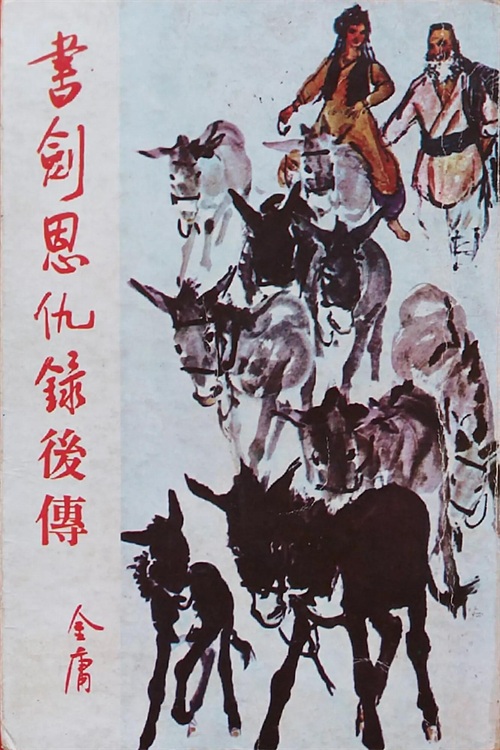 書劍恩仇錄後傳
金庸